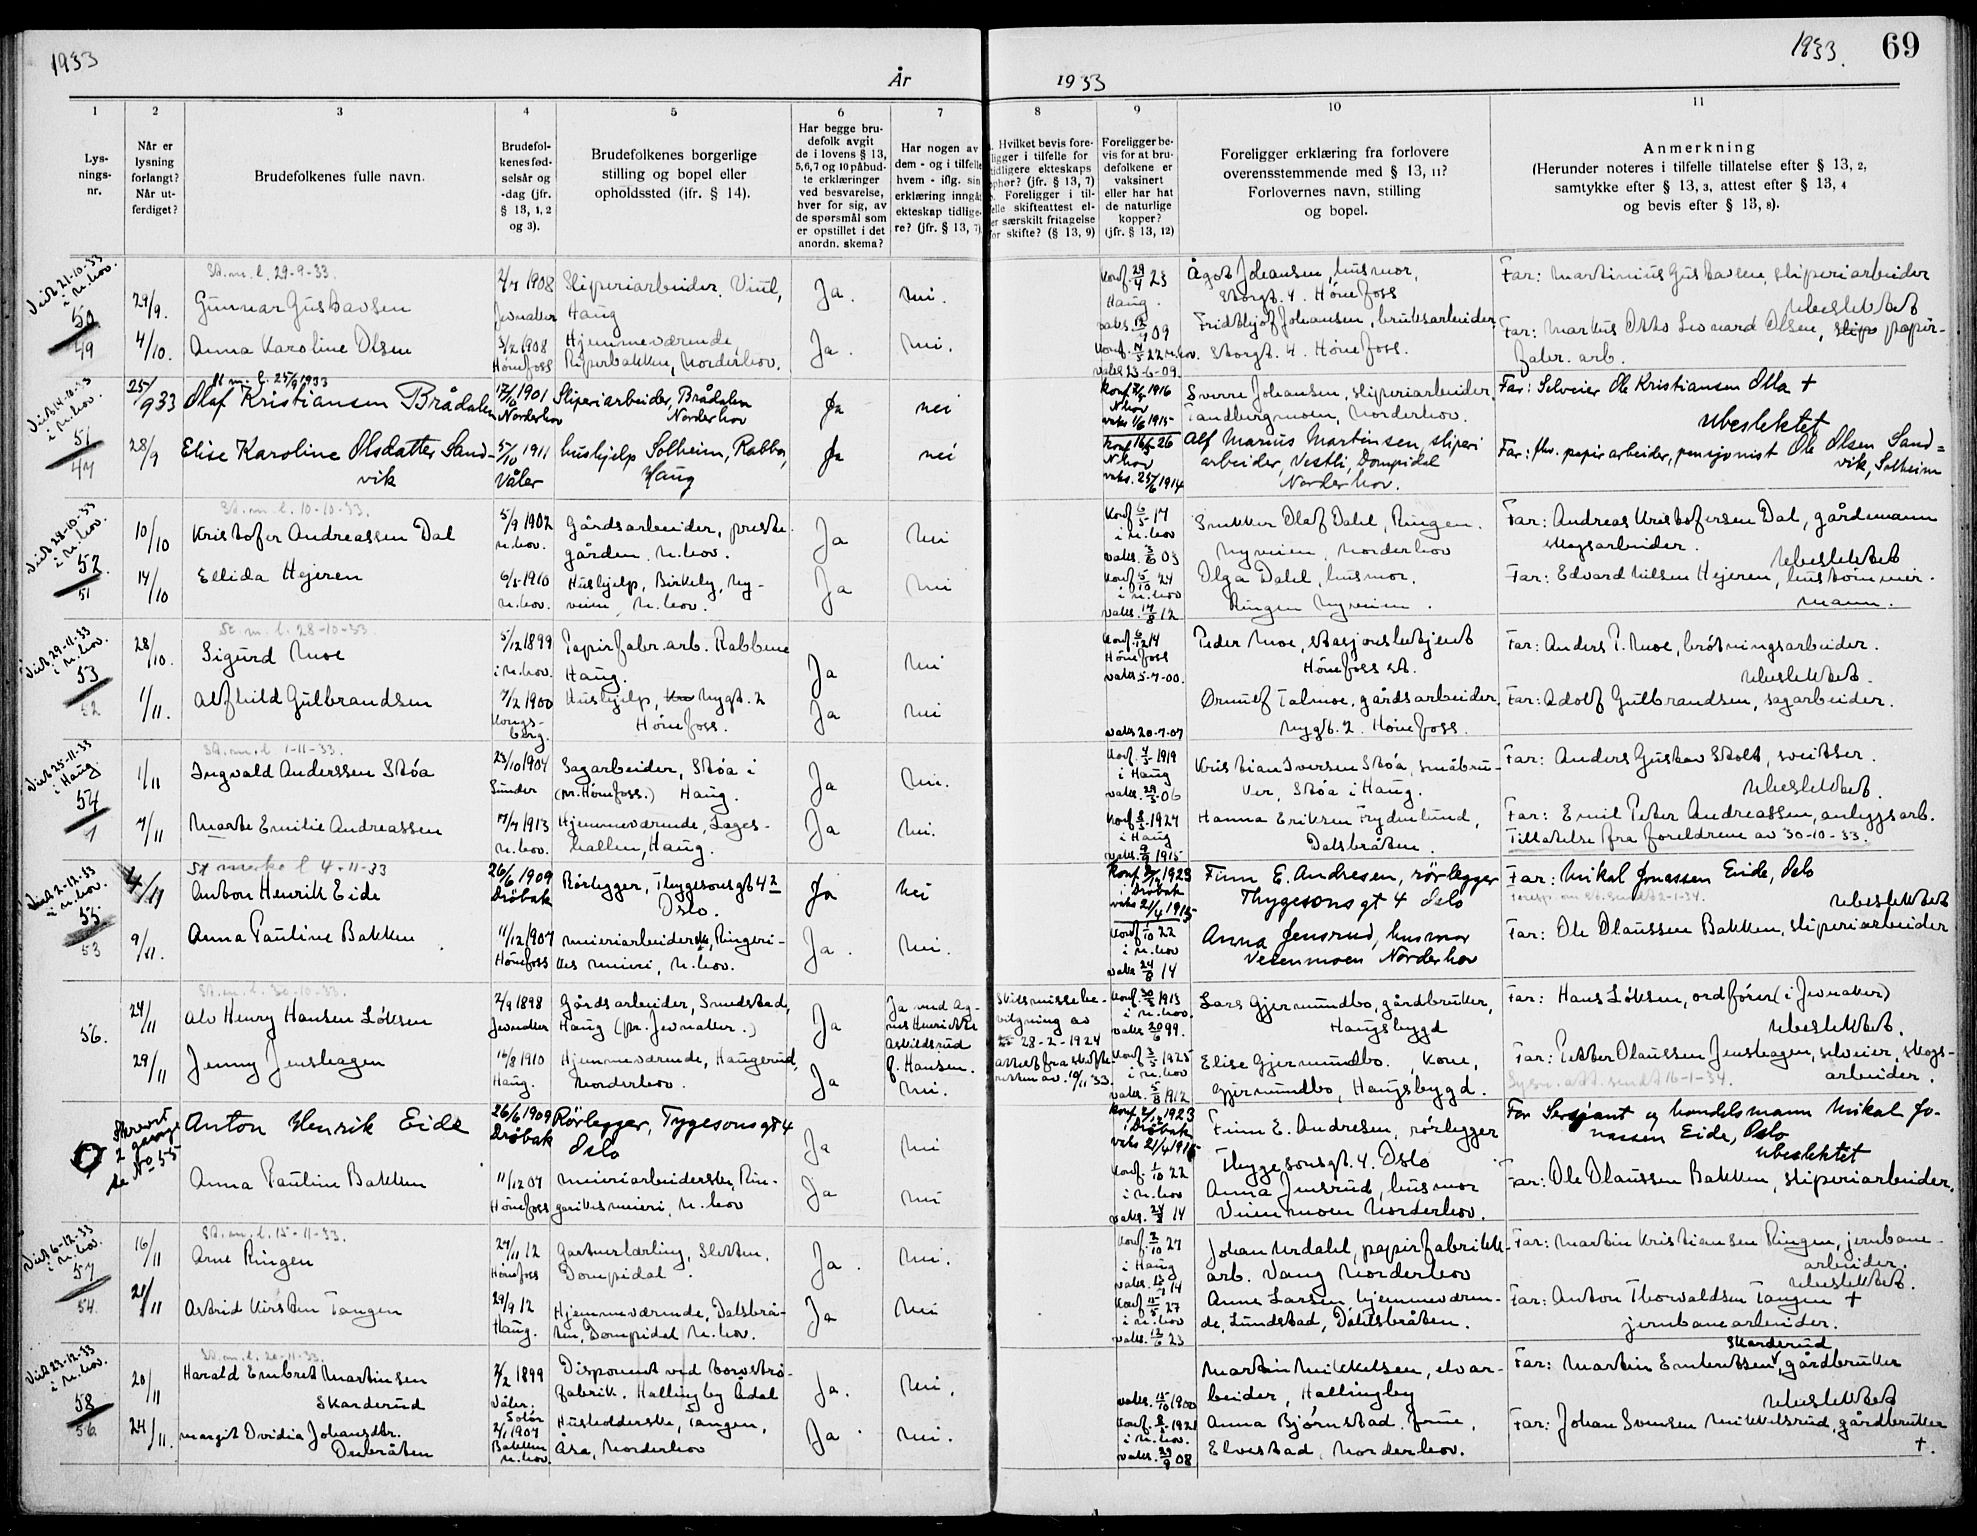 1933
År
1933
1933.
69
1 2 3 4 5 6 7 8 9 10 11
Lys-
nings-
nr.
Når er
lysning
forlangt?
Når ut-
ferdiget?
Brudefolkenes fulle navn.
Brudefol-
kenes fød-
selsår og
-dag (jfr.
§ 13, 1, 2
og 3).
Brudefolkenes borgerlige
stilling og bopel eller
opholdssted (jfr. § 14).
Har begge bru-
defolk avgit
de i lovens § 13,
5,6,7 og 10 påbud-
te erklæringer
ved besvarelse,
hver for sig, av
de spørsmål som
er opstillet i det
anordn. skema?
Har nogen av
dem - og i tilfelle
hvem - iflg. sin
erklæring inngå
ekteskap tidlige-
re? (jfr. § 13, 7)
Hvilket bevis fore-
ligger i tilfelle for
tidligere ekteskaps
ophør? (jfr. § 13, 7)
Foreligger i til-
felle skifteattest el-
er særskilt fritagelse
for skifte? (§ 13, 9)
Foreligger be-
vis for at bru-
defolkene er
vaksinert
eller har hat
de naturlige
kopper?
(jfr. § 13, 12)
Foreligger erklæring fra forlovere
overensstemmende med § 13, 11?
Forlovernes navn, stilling
og bopel.
Anmerkning
(Herunder noteres i tilfelle tillatelse efter § 13, 2,
samtykke efter § 13, 3, attest efter § 13, 4
og bevis efter § 13, 8).
Viet 21-10-33
i N.hov.
50
49
29/9.
St. m. l. 29-9-33.
Gunnar Gustavsen
2/7 1908
Jevnaker
Sliperiarbeider, Viul,
Haug
Ja.
Nei.
Konf. 29/4 23
Haug.
vaks. 12/9 09
Ågot Johansen, husmor,
Storgt. 4. Hønefoss
Fridthjof Johansen, bruksarbeider,
Storgt. 4. Hønefoss.
Far: Martinius Gustavsen, sliperiarbeider
Ubeslektet
4/10.
Anna Karoline Olsen
3/2 1908
Hønefoss
Hjemmeværende
Piperbakken, Norderhov.
Ja.
Nei.
vaks. 23-6-09.
Far: Markus Otto Leonard Olsen, slip papir-
fabr. arb.
Viet 14-10-33
i N.hov.
51
47
25/9 33
St m. l. 25/9 1933
Olaf Kristiansen Brådalen
17/6 1901
Norderhov
Sliperiarbeider, Brådalen
Norderhov
Ja
nei
N.hov
vaks 1/6 1915
Sverre Johansen, sliperiarbeider,
Tandbergmoen, Norderhov.
Far: Selveier Ole Kristiansen Olla +
Ubeslektet
28/9
Elise Karoline Olsdatter Sand-
vik
5/10 1911
Våler
hushjelp Solheim, Rabba,
Haug
Ja
nei
Konf 16/5 26
N.hov
vaks. 25/6 1914
Alf Marius Martinsen, sliperi
arbeider, Vestli, Dompidal
Norderhov.
Far: fhv. papirarbeider, pensjonist Ole Olsen Sand=
vik, Solheim
Viet 28-10-33
i N.hov.
52
51
10/10
St. m. l. 10-10-33.
Kristofer Andreassen Dal
5/9 1902
N.hov.
Gårdsarbeider, preste-
gården. N.hov.
Ja
Nei
Konf 6/5 17
i N.hov
vaks. 3/6 03
Snekker Olaf Dahl, Ringen.
Nyveien, Norderhov
Far: Andreas Kristofersen Dal, gårdmann
skogsarbeider.
Ubeslektet
14/10
Ellida Hejeren
6/5 1910
N.hov.
Hushjelp, Birkely, Ny-
veien, N.hov.
Ja
Nei
Konf 5/10 24
i N.hov
vaks. 14/8 12
Olga Dahl, husmor.
Ringen Nyveien.
Far: Edvard Nilsen Hejeren, hustømmer-
mann.
Viet 29-11-33
i N.hov.
53
52
28/10.
St. m. l. 28-10-33
Sigurd Moe
5/12 1899
i N.hov.
Papirfabr.arb. Rabbene
Haug.
Ja
Nei
Hønefoss
vaks 5-7-00.
Peder Moe, stasjonsbetjent
Hønefoss st.
Far: Anders P. Moe, brøtningsarbeider.
Ubeslektet.
1/11.
Alfhild Gulbrandsen
7/2 1900
Kongs-
berg.
Hushjelp, Nygt. 2
Hønefoss.
Ja
Nei
vaks 20-7-07
Ørnulf Talmoe, gårdsarbeider,
Nygt. 2. Hønefoss.
Far: Adolf Gulbrandsen, sagarbeider.
Viet 25-11-33
i Haug.
54
1/11
St. m. l. 1-11-33.
Ingvald Anderssen Støa
23/10 1904
Lunder
Sagarbeider, Støa i
(pr. Hønefoss.) Haug.
Ja
Nei.
i Haug
vaks. 29/5-06
Kristian Iversen Støa, småbru-
ker, Støa i Haug.
Far: Anders Gustav Stolt, sveitser.
Ubeslektet.
7/11
Marte Emilie Andreassen
17/7 1913
N.hov.
Hjemmeværende, Lages-
hallen, Haug.
Ja
Nei.
i Haug
vaks. 9/9 1915
Hanna Eriksen Frydenlund,
Dalsbråten.
Far: Emil Peter Andreassen, anleggsarb.
Tillatelse fra foreldrene av 30-10-33.
Viet 2-12-33
i N.hov.
55
53
4/11
St merke l 4-11-33
Anton Henrik Eide
26/6 1909
Drøbak
Rørlegger, Thygesonsgt 4
Oslo.
Ja
Nei
Konf 2/10 1923
i Drøbak
vaks 21/4 1915
Finn E. Andresen, rørlegger
Thygesonsgt 4 Oslo
Far: Mikal Jonassen Eide, Oslo
Ubeslektet
9/11.
Anna Pauline Bakken
11/12 1907
Hønefoss
Meieriarbeiderske, Ringeri-
kes meieri, N.hov.
Ja.
Nei.
Konf 1/10 22
i N.hov
vaks 24/8 14
Anna Jensrud, husmor
Veienmoen Norderhov
Far: Ole Olaussen Bakken, sliperiarbeider
56.
24/11
St. m. l. 30-10-33.
Alv Henry Hansen Løken
2/9 1898
Jevnaker
Gårdsarbeider, Smedstad,
Haug (pr. Jevnaker.)
Ja
Ja med Ag-
nes Henriette
Askildsrud
f. Hansen.
Skilsmissebe-
vilgning av
28-2-1924
attest fra skifte-
retten av 10/11 33.
i N.hov.
vaks 20/6 99.
Lars Gjermundbo, gårdbruker,
Haugsbygd
Far: Hans Løken, ordfører (i Jevnaker)
Ubeslektet.
29/11
Jenny Jenshagen
16/8 1910
Haug.
Hjemmeværende, Haugerud,
Norderhov.
Ja
Nei.
Konf 3/5 1925
i N.hov
vaks. 5/8 1912
Elise Gjermundbo, kone,
Gjermundbo, Haugsbygd.
Far: Petter Olaussen Jenshagen, selveier, skogs-
arbeider.
Skrevet
2 gange
se No 55
Anton Henrik Eide
26/6 1909
Drøbak
Rørlegger, Tygesonsgt 4
Oslo
Ja
Nei
Konf. 2/10 1923
i Drøbak
vaks 21/4 1915
Finn E. Andresen, rørlegger
Thygesonsgt. 4. Oslo
Far Sersjant og handelsmann Mikal Jo-
nassen Eide, Oslo
Ubeslektet
Anna Pauline Bakken
11/12 07
Hønefoss
Meieriarbeiderske, Rin-
gerikes meieri, N.hov
Ja
Nei
Konf. 1/10 22
i N.hov
vaks. 24/8 14
Anna Jensrud, husmor
Veienmoen Norderhov.
Far: Ole Olaussen Bakken, sliperiarbeider.
Viet 6-12-33
i N.hov.
57
54.
16/11
St. m. l. 15-11-33.
Arne Ringen
27/11 12
Hønefoss
Gartnerlærling, Sletten,
Dompidal.
Ja.
Nei.
Konf. 2/10 27
i Haug
Johan Urdahl, papirfabrikk-
arb. Vang Norderhov
Far: Martin Kristiansen Ringen, jernbane-
arbeider.
Ubeslektet.
21/11
Astrid Kirsten Tangen
29/9 12
Haug.
Hjemmeværende, Dalsbrå-
ten, Dompidal N.hov.
Ja
Nei
Konf 15/5 27
i N.hov
vaks. 12/6 23
Anna Larsen hjemmeværen-
de, Lundstad, Dahlsbråten.
Far: Anton Thorvaldsen Tangen +
jernbanearbeider.
Viet 23-12-33
i N.hov.
58
56
20/11
St. m. l. 20-11-33.
Harald Embret Martinsen
Skarderud
2/2 1899
Våler,
Solør
Disponent ved torvstrø-
fabrik. Hallingby Ådal
Ja.
Nei.
vaks. 15/10 1900
Martin Mikkelsen, elvar-
beider, Hallingby
Skarderud
Far: Martin Embretsen, gårdbruker
Ubeslektet
24/11.
Margit Ovidia Johansdtr.
Deibråten
2/1 1907
Bakken
N.hov.
Husholderske, Tangen,
Åsa, Norderhov
Ja.
Nei.
i N.hov.
vaks. 29/9 08
Anna Bjørnstad frue,
Elvestad, Norderhov.
Far: Johan Svensen Mikkelsrud, gårdbruker
+.